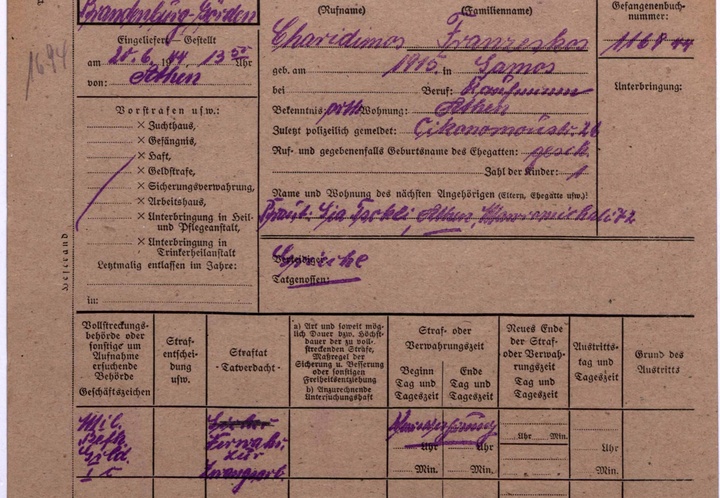 Brandenburg-Görden
(Rufname)
(Familienname)
Gefangenenbuch-
nummer:
1168 44
1694
Eingeliefert - Gestellt
am 20.6. 1944, 13 50 Uhr
von: Athen
Charidemos Franzeskos
geb. am 1915, in Samos
bei Beruf: Kaufmann
Bekenntnis: orth. Wohnung: Athen
Zuletzt polizeilich gemeldet:
Ruf- und gegebenenfalls Geburtsname des Ehegatten: gesch.
Zahl der Kinder: 1
Unterbringung:
Vorstrafen usw.:
× Zuchthaus,
× Gefängnis,
× Haft,
× Geldstrafe,
× Sicherungsverwahrung,
× Arbeitshaus,
× Unterbringung in Heil-
und Pflegeanstalt,
× Unterbringung in
Trinkerheilanstalt
Letztmalig entlassen im Jahre:
in:
Name und Wohnung des nächsten Angehörigen (Eltern, Ehegatte usw.)
Braut: Athen, 72
Verteidiger:
Tatgenossen:
Heftrand
Vollstreckungs-
behörde oder
sonstige um
Aufnahme
ersuchende
Behörde
Geschäftszeichen
Straf-
entschei-
dung
usw.
Straftat
- Tatverdacht -
a) Art und soweit mög-
lich Dauer bzw. Höchst-
dauer der zu voll-
streckenden Strafe,
Maßregel der
Sicherung u. Besserung
oder sonstigen
Freiheitsentziehung
b) Anzurechnende
Untersuchungshaft
Straf- oder
Verwahrungszeit
Beginn
Tag und
Tageszeit
Ende
Tag und
Tageszeit
Neues Ende
der Straf-
oder Verwah-
rungszeit
Tag und
Tageszeit
Austritts-
tag und
Tageszeit
Grund des
Austritts
Mil.
Befh.
I c
Verwahr.
zur
Zwangsarb.
Uhr
Uhr
Uhr Min.
Uhr
Min.
Min.
Min.